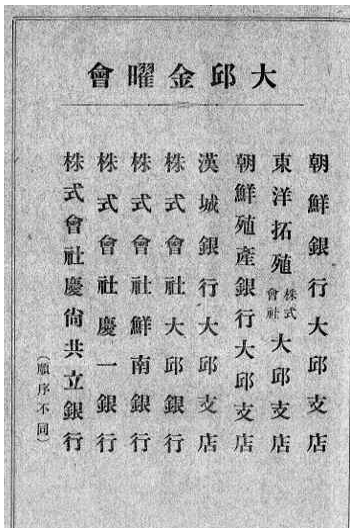 大邱金曜會
朝鮮銀行大邱支店
東洋拓殖株式會社大邱支店
朝鮮殖產銀行大邱支店
漢城銀行大邱支店
株式會社大邱銀行
株式會社鮮南銀行
株式會社慶一銀行
株式會社慶尙共立銀行
(順序不同)